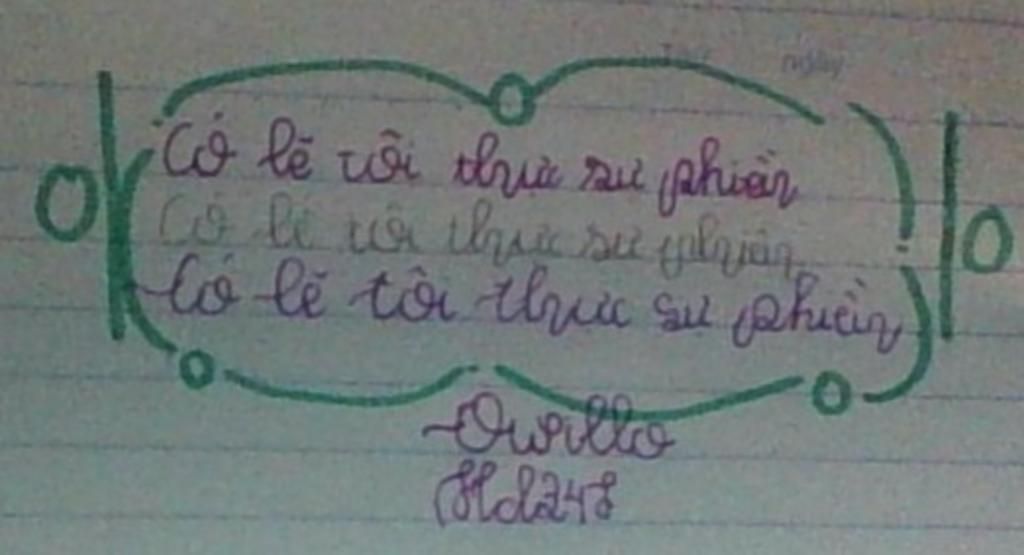 ngày
Có lẽ tôi thực sự phiền
Có lẽ tôi thực sự phiền
Có lẽ tôi thực sự phiền